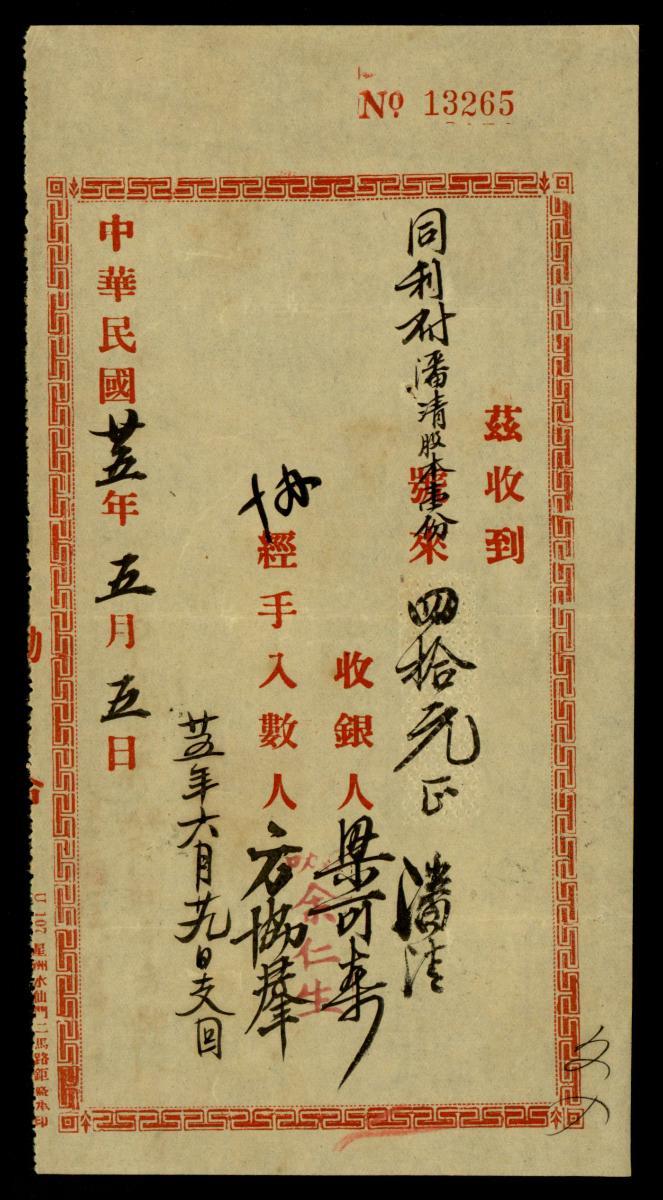 No 13265
茲收到
同利付潘清股本壹份
號來
四拾元正 潘清
收銀人 梁可壽
余仁生
經手入數人 方協羣
廿五年六月廿九日支回
中華民國廿五年五月五日
星洲水仙門二馬路鉅承印